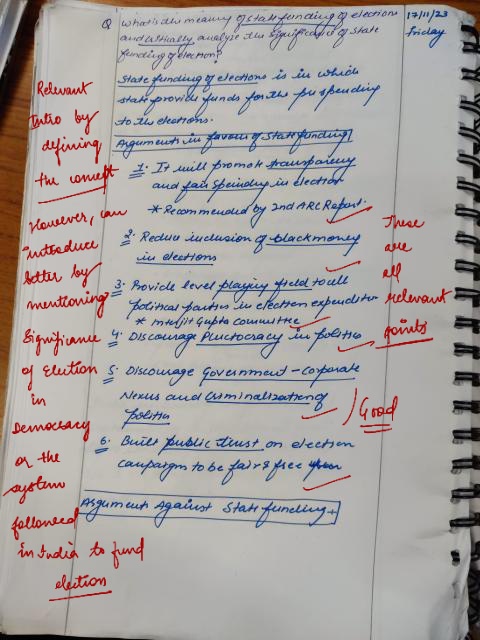 Q What is the meaning of state funding of elections
and critically analyze the significance of state
funding of election?
17/11/23
Friday
State funding of elections is in which
state provide funds for the for spending
to the elections.
Arguments in favour of State funding
1. It will promote transparency
and fair spending in election
* Recommended by 2nd ARC Report.
2. Reduce inclusion of black money
in elections
3. Provide level playing field to all
political parties in election expenditure
* Indrajit Gupta committee
4. Discourage Pluctocracy in politics
5. Discourage Government-Corporate
Nexus and Criminalization of
politics
6. Built public trust on election
campaigns to be fair & free
Arguments Against State funding
Relevant
Intro by
defining
the concept
However, can
introduce
better by
mentioning
Significance
of Election
in
Democracy
or the
system
followed
in India to fund
election
These
are
all
relevant
points
Good